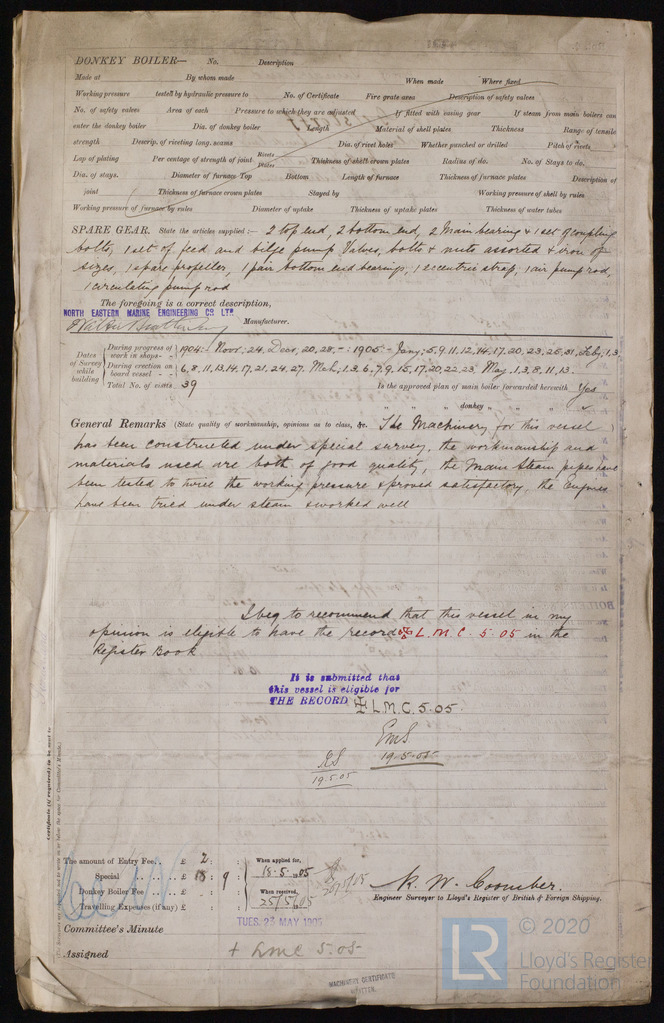 DONKEY BOILER— No. Description
Made at By whom made When made Where fixed
Working pressure tested by hydraulic pressure to No. of Certificate Fire grate area Description of safety valves
No. of safety valves Area of each Pressure to which they are adjusted If fitted with easing gear If steam from main boilers can
enter the donkey boiler Dia. of donkey boiler Length Material of shell plates Thickness Range of tensile
strength Descrip. of riveting long. seams Dia. of rivet holes Whether punched or drilled Pitch of rivets
Lap of plating Per centage of strength of joint Rivets Plates Thickness of shell crown plates Radius of do. No. of Stays to do.
Dia. of stays. Diameter of furnace Top Bottom Length of furnace Thickness of furnace plates Description of
joint Thickness of furnace crown plates Stayed by Working pressure of shell by rules
Working pressure of furnace by rules Diameter of uptake Thickness of uptake plates Thickness of water tubes
SPARE GEAR. State the articles supplied:— 2 top end, 2 bottom end, 2 Main bearing & 1 set of coupling
bolts, 1 set of feed and bilge pump Valves, bolts & nuts assorted & iron of
sizes, 1 spare propeller, 1 pair bottom end bearings, 1 eccentric strap, 1 air pump rod,
1 circulating pump rod
The foregoing is a correct description,
NORTH EASTERN MARINE ENGINEERING CO LTD.
Manufacturer.
Dates of Survey while building
During progress of work in shops - - 1904:- Novr. 24, Decr, 20, 28, -: 1905:- Jany; 5, 9, 11, 12, 14, 17, 20, 23, 25, 31, Feby, 1, 3
During erection on board vessel - - 6, 8, 11, 13, 14, 17, 21, 24, 27. Mch; 1, 3, 6, 7, 9, 15, 17, 20, 22, 23 May. 1, 3, 8, 11, 13.
Total No. of visits 39 Is the approved plan of main boiler forwarded herewith Yes
" " " donkey " " "
General Remarks (State quality of workmanship, opinions as to class, &c. The Machinery for this vessel
has been constructed under special survey, the workmanship and
materials used are both of good quality, the Main steam pipes have
been tested to twice the working pressure & proved satisfactory, the Engines
have been tried under steam & worked well
I beg to recommend that this vessel in my
opinion is eligible to have the record ✠ L.M.C. 5.05 in the
Register Book
It is submitted that
this vessel is eligible for
THE RECORD ✠ L.M.C. 5.05.
19.5.05
19.5.05
Certificate (if required) to be sent to
The amount of Entry Fee.. £ 2 : :
When applied for,
Special .. .. .. £ 18 : 9 : 18.5.1905
Donkey Boiler Fee .. .. £ : :
When received,
Travelling Expenses (if any) £ : : 25/5/05
25/5/05
K. W. Coomber.
Engineer Surveyor to Lloyd's Register of British & Foreign Shipping.
Committee's Minute TUES. 23 MAY 1905
Assigned + LMC 5.05
MACHINERY CERTIFICATE
WRITTEN.
LR
© 2020
Lloyd's Register
Foundation